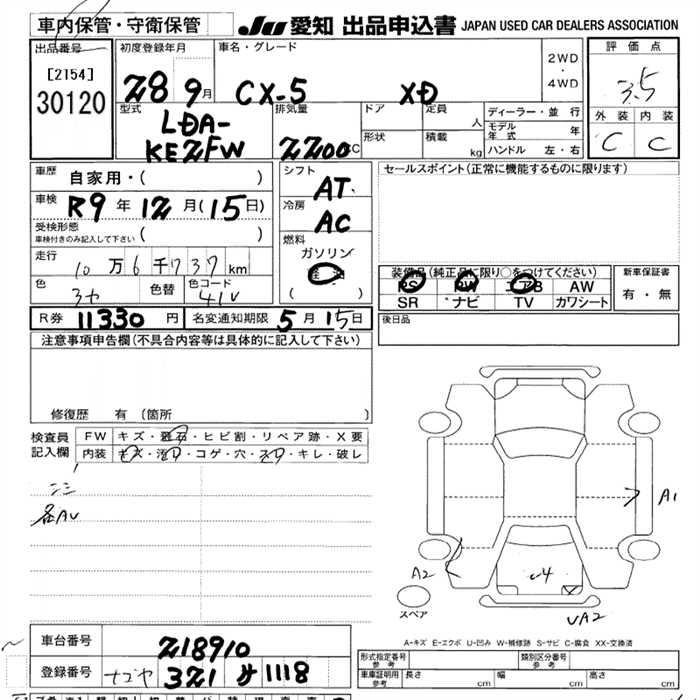 車内保管・守衛保管
JU 愛知 出品申込書 JAPAN USED CAR DEALERS ASSOCIATION
出品番号
[2154]
30120
初度登録年月
28 9月
車名・グレード
CX-5 XD
2WD
・
4WD
評価点
3.5
外装 内装
C C
型式
LDA-
KE2FW
排気量
2200CC
ドア
形状
定員 人
積載 kg
ディーラー・並行
モデル年式 年
ハンドル 左・右
車歴 自家用・( )
車検 R9年12月(15日)
受検形態
車検付きのみ記入して下さい ( )
走行 10万6千737km
色 色替 色コード 41V
シフト AT.
冷房 AC
燃料
ガソリン
( )
セールスポイント(正常に機能するものに限ります)
装備品(純正品に限り○をつけてください)
PS PW エアB AW
SR ナビ TV カワシート
新車保証書
有・無
R券 11330円 名変通知期限 5月15日
後日品
注意事項申告欄(不具合内容等は具体的に記入して下さい)
修復歴 有 (箇所 )
検査員
記入欄
FW キズ・飛石・ヒビ割・リペア跡・X要
内装 キズ・汚れ・コゲ・穴・スレ・キレ・破レ
各AU
A1
A2
U4
UA2
スペア
A-キズ E-エクボ U-凹み W-補修跡 S-サビ C-腐食 XX-交換済
車台番号 218910
登録番号 ナゴヤ 321 サ 1118
形式指定番号
参考
類別区分番号
参考
車庫証明用
参考
長さ cm 幅 cm 高さ cm